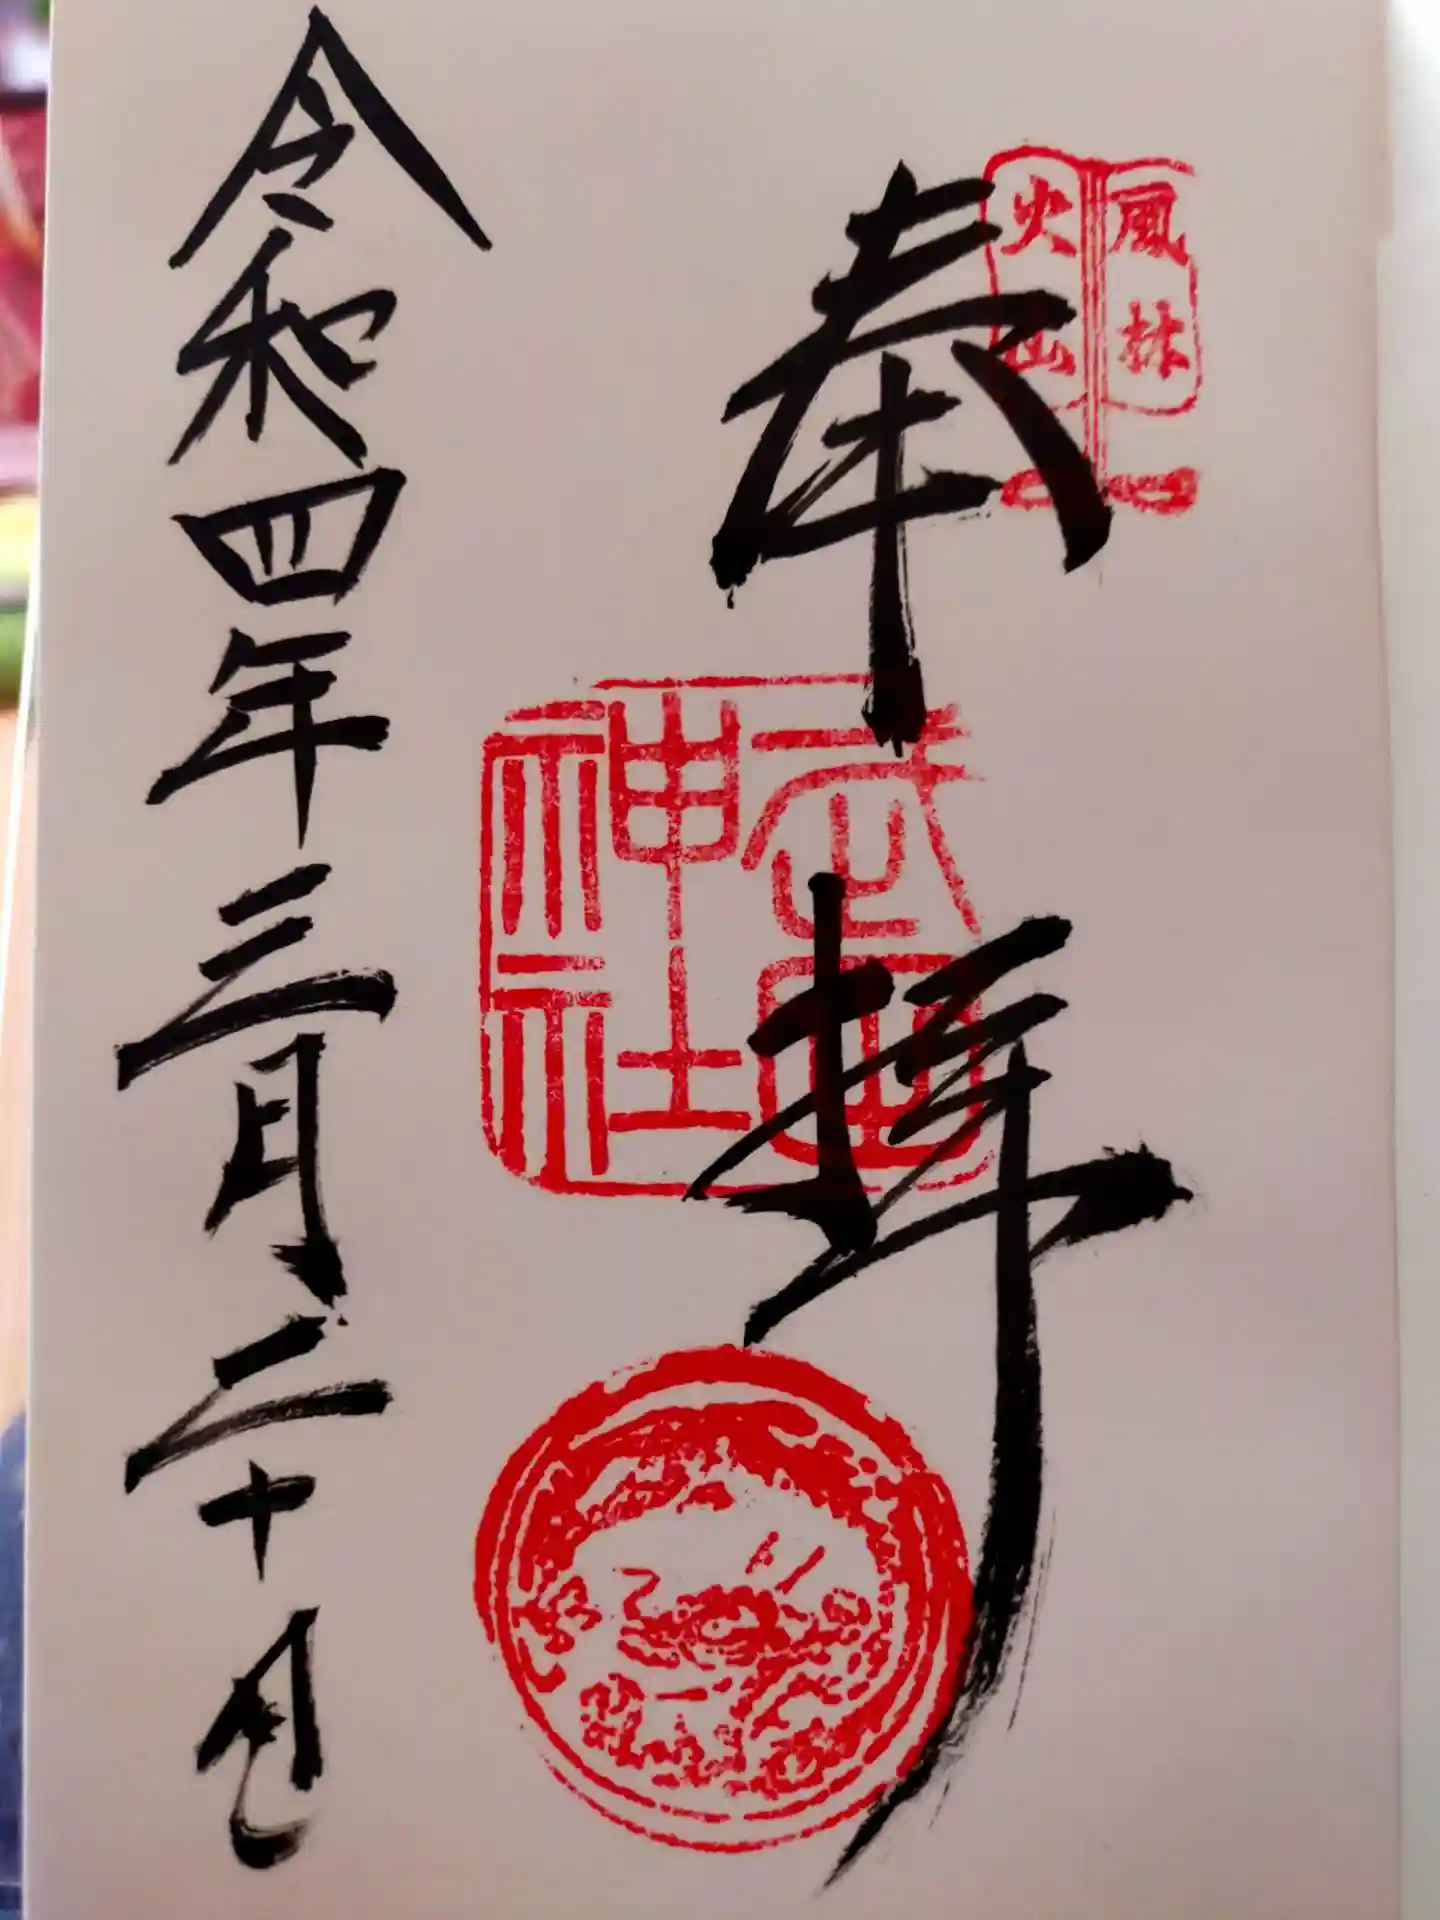 風林
火山
奉拝
武田
神社
令和四年三月二十日